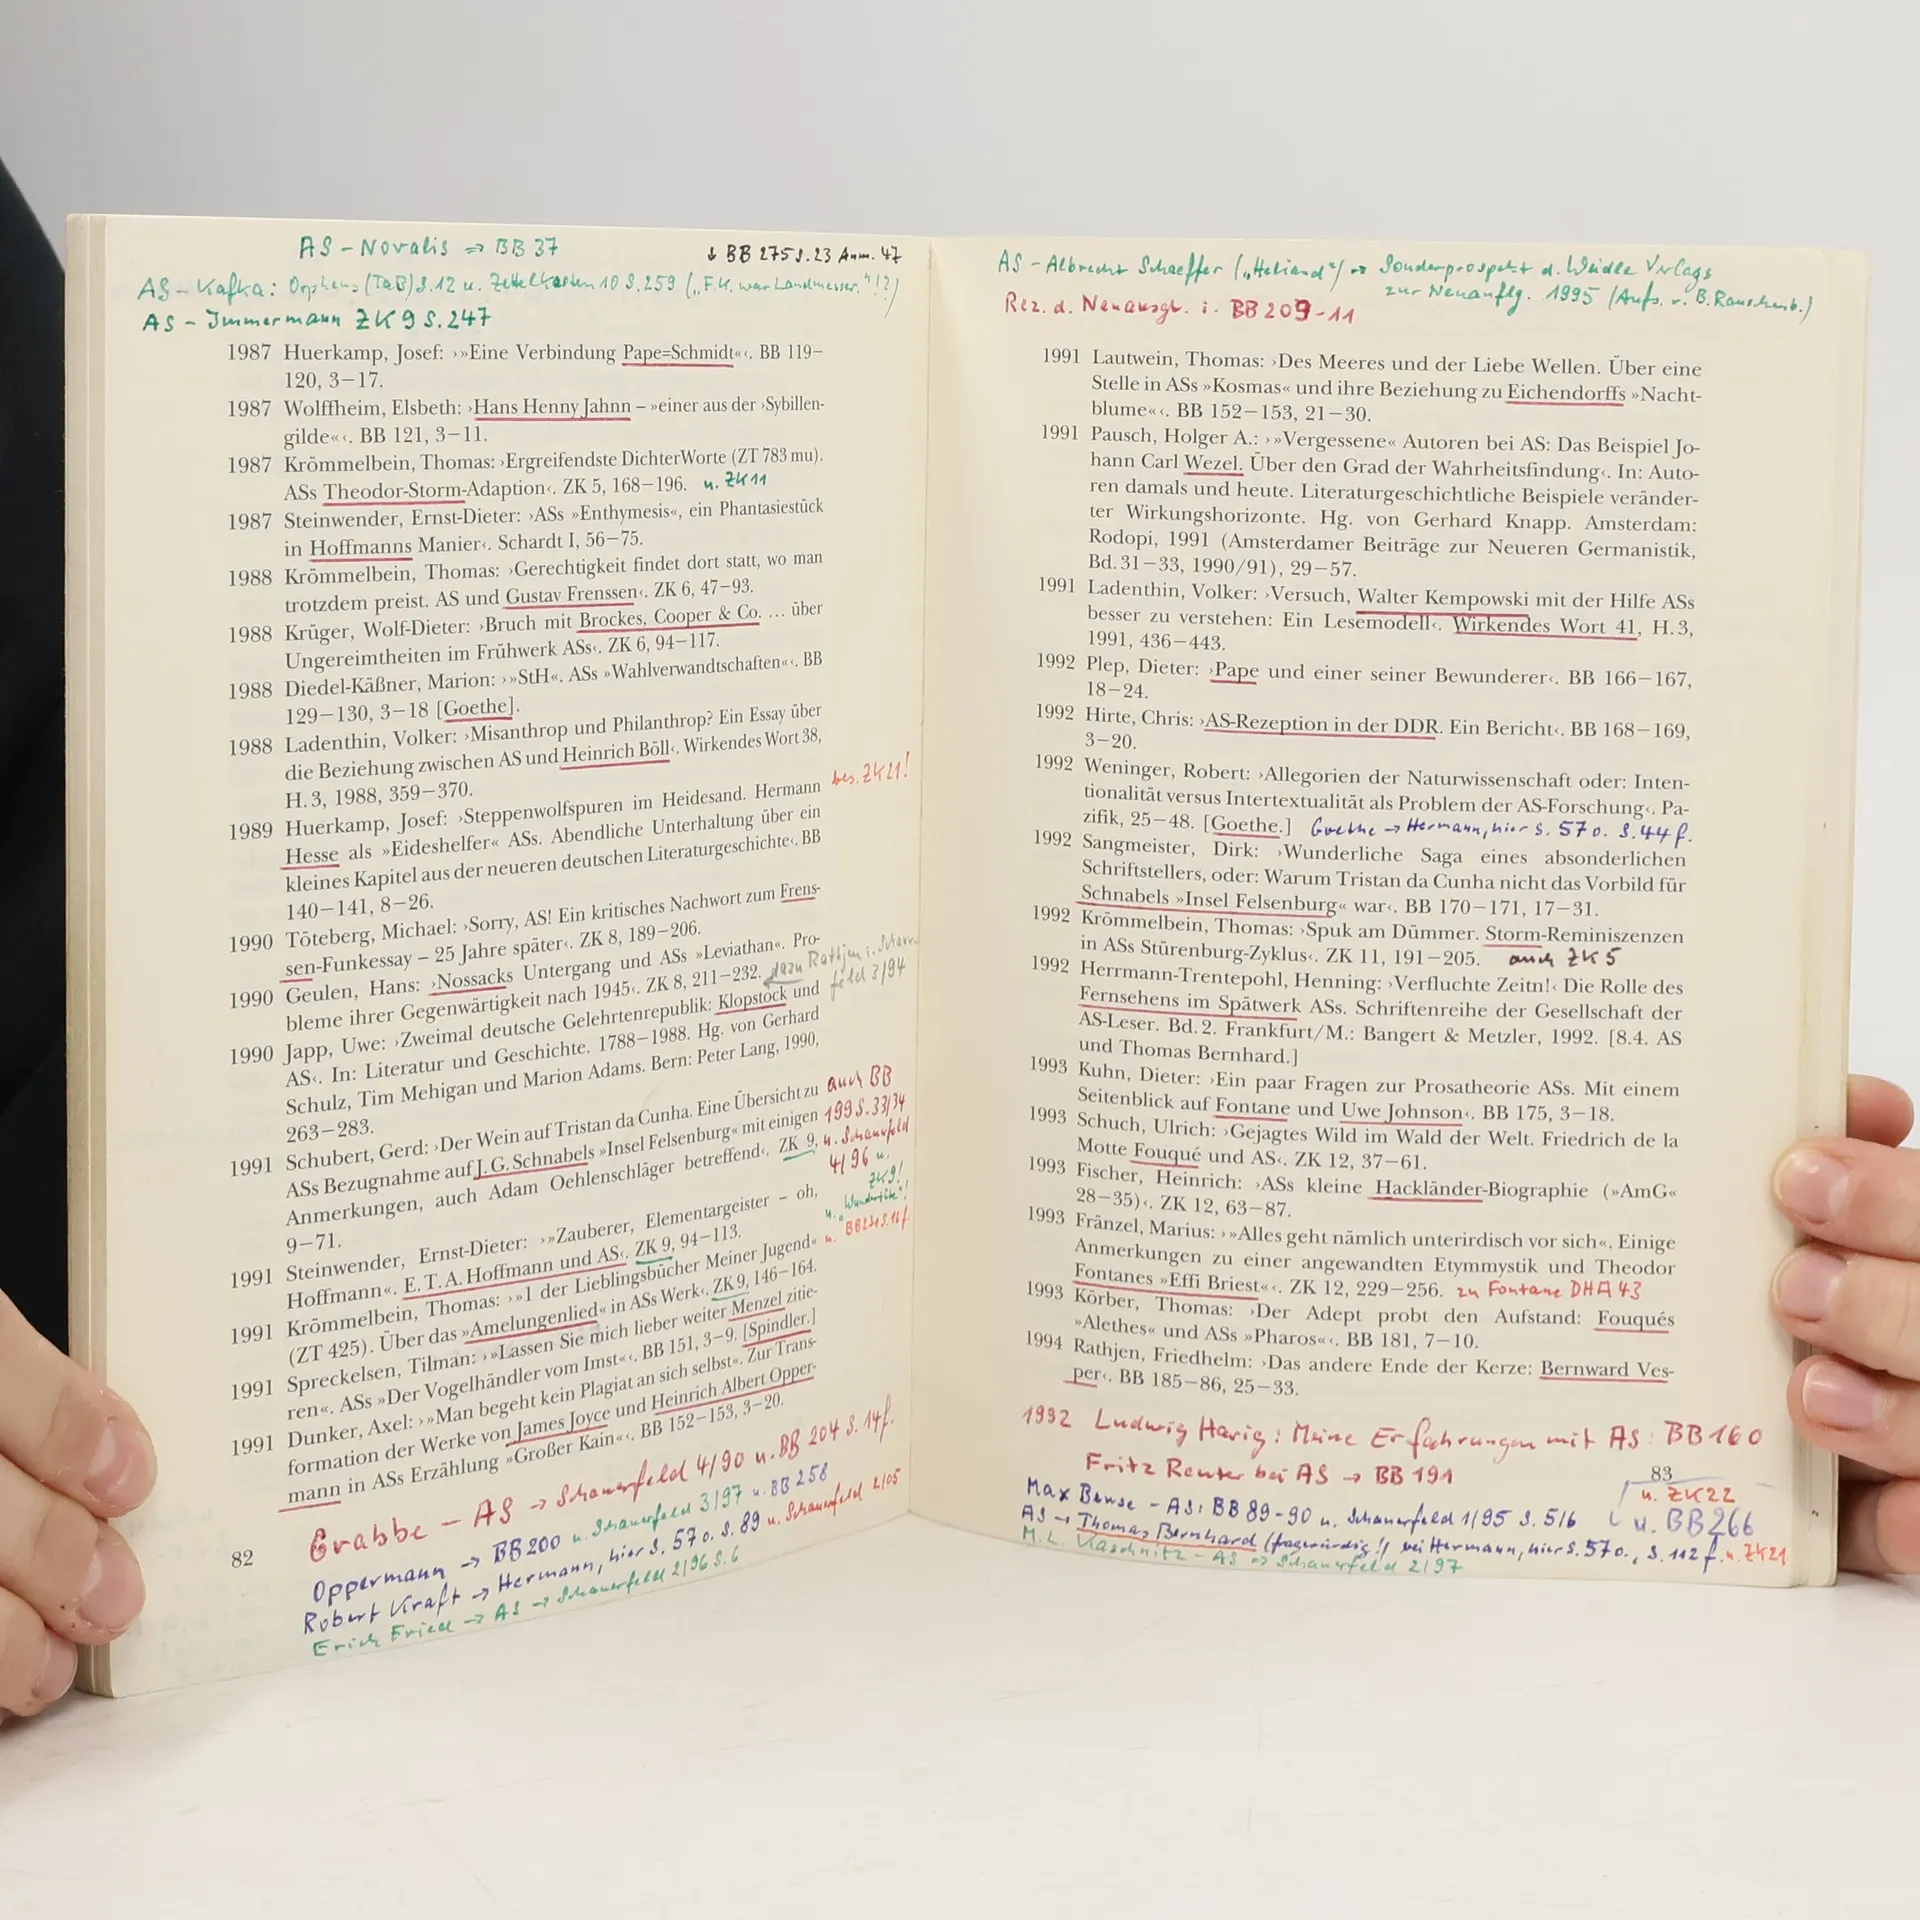 AS – Novalis ⇒ BB 37
↓ BB 275 S. 23 Anm. 47
AS – Kafka: Orpheus (TaB) S. 12 u. Zettelkasten 10 S. 259 („F.K. war Landmesser."!?)
AS – Immermann ZK 9 S. 247
1987 Huerkamp, Josef: ›»Eine Verbindung Pape=Schmidt«‹. BB 119–
120, 3–17.
1987 Wolffheim, Elsbeth: ›Hans Henny Jahnn – »einer aus der ›Sybillen-
gilde«‹. BB 121, 3–11.
1987 Krömmelbein, Thomas: ›Ergreifendste DichterWorte (ZT 783 mu).
ASs Theodor-Storm-Adaption‹. ZK 5, 168–196. u. ZK 11
1987 Steinwender, Ernst-Dieter: ›ASs »Enthymesis«, ein Phantasiestück
in Hoffmanns Manier‹. Schardt I, 56–75.
1988 Krömmelbein, Thomas: ›Gerechtigkeit findet dort statt, wo man
trotzdem preist. AS und Gustav Frenssen‹. ZK 6, 47–93.
1988 Krüger, Wolf-Dieter: ›Bruch mit Brockes, Cooper & Co. … über
Ungereimtheiten im Frühwerk ASs‹. ZK 6, 94–117.
1988 Diedel-Käßner, Marion: ›»StH«. ASs »Wahlverwandtschaften«‹. BB
129–130, 3–18 [Goethe].
1988 Ladenthin, Volker: ›Misanthrop und Philanthrop? Ein Essay über
die Beziehung zwischen AS und Heinrich Böll‹. Wirkendes Wort 38,
H. 3, 1988, 359–370.
bes. ZK 21!
1989 Huerkamp, Josef: ›Steppenwolfspuren im Heidesand. Hermann
Hesse als »Eideshelfer« ASs. Abendliche Unterhaltung über ein
kleines Kapitel aus der neueren deutschen Literaturgeschichte‹. BB
140–141, 8–26.
1990 Töteberg, Michael: ›Sorry, AS! Ein kritisches Nachwort zum Frens-
sen-Funkessay – 25 Jahre später‹. ZK 8, 189–206.
1990 Geulen, Hans: ›Nossacks Untergang und ASs »Leviathan«. Pro-
bleme ihrer Gegenwärtigkeit nach 1945‹. ZK 8, 211–232. dazu Rathjen i. Schauer-
feld 3/94
1990 Japp, Uwe: ›Zweimal deutsche Gelehrtenrepublik: Klopstock und
AS‹. In: Literatur und Geschichte. 1788–1988. Hg. von Gerhard
Schulz, Tim Mehigan und Marion Adams. Bern: Peter Lang, 1990,
263–283.
1991 Schubert, Gerd: ›Der Wein auf Tristan da Cunha. Eine Übersicht zu
ASs Bezugnahme auf J. G. Schnabels »Insel Felsenburg« mit einigen
Anmerkungen, auch Adam Oehlenschläger betreffend‹. ZK 9,
9–71.
auch BB
199 S. 33/34
u. Schauerfeld
4/96 u.
ZK 9!
u. „Wundertüte"!
u. BB 231 S. 16 f.
1991 Steinwender, Ernst-Dieter: ›»Zauberer, Elementargeister – oh,
Hoffmann«. E. T. A. Hoffmann und AS‹. ZK 9, 94–113.
1991 Krömmelbein, Thomas: ›»1 der Lieblingsbücher Meiner Jugend«
(ZT 425). Über das »Amelungenlied« in ASs Werk‹. ZK 9, 146–164.
1991 Spreckelsen, Tilman: ›»Lassen Sie mich lieber weiter Menzel zitie-
ren«. ASs »Der Vogelhändler vom Imst«‹. BB 151, 3–9. [Spindler.]
1991 Dunker, Axel: ›»Man begeht kein Plagiat an sich selbst«. Zur Trans-
formation der Werke von James Joyce und Heinrich Albert Opper-
mann in ASs Erzählung »Großer Kain«‹. BB 152–153, 3–20.
Grabbe – AS → Schauerfeld 4/90 u. BB 204 S. 14 f.
Oppermann → BB 200 u. Schauerfeld 3/97 u. BB 258
Robert Kraft → Hermann, hier S. 57 o. S. 89 u. Schauerfeld 2/05
Erich Fried → AS → Schauerfeld 2/96 S. 6
82
AS – Albrecht Schaeffer („Heliand") → Sonderprospekt d. Weidle Verlags
zur Neuauflg. 1995 (Aufs. v. B. Rauschenb.)
Rez. d. Neuausg. i. BB 209–11
1991 Lautwein, Thomas: ›Des Meeres und der Liebe Wellen. Über eine
Stelle in ASs »Kosmas« und ihre Beziehung zu Eichendorffs »Nacht-
blume«‹. BB 152–153, 21–30.
1991 Pausch, Holger A.: ›»Vergessene« Autoren bei AS: Das Beispiel Jo-
hann Carl Wezel. Über den Grad der Wahrheitsfindung‹. In: Auto-
ren damals und heute. Literaturgeschichtliche Beispiele veränder-
ter Wirkungshorizonte. Hg. von Gerhard Knapp. Amsterdam:
Rodopi, 1991 (Amsterdamer Beiträge zur Neueren Germanistik,
Bd. 31–33, 1990/91), 29–57.
1991 Ladenthin, Volker: ›Versuch, Walter Kempowski mit der Hilfe ASs
besser zu verstehen: Ein Lesemodell‹. Wirkendes Wort 41, H. 3,
1991, 436–443.
1992 Plep, Dieter: ›Pape und einer seiner Bewunderer‹. BB 166–167,
18–24.
1992 Hirte, Chris: ›AS-Rezeption in der DDR. Ein Bericht‹. BB 168–169,
3–20.
1992 Weninger, Robert: ›Allegorien der Naturwissenschaft oder: Inten-
tionalität versus Intertextualität als Problem der AS-Forschung‹. Pa-
zifik, 25–48. [Goethe.] Goethe → Hermann, hier S. 57 o. S. 44 f.
1992 Sangmeister, Dirk: ›Wunderliche Saga eines absonderlichen
Schriftstellers, oder: Warum Tristan da Cunha nicht das Vorbild für
Schnabels »Insel Felsenburg« war‹. BB 170–171, 17–31.
1992 Krömmelbein, Thomas: ›Spuk am Dümmer. Storm-Reminiszenzen
in ASs Stürenburg-Zyklus‹. ZK 11, 191–205. auch ZK 5
1992 Herrmann-Trentepohl, Henning: ›Verfluchte Zeitn!‹ Die Rolle des
Fernsehens im Spätwerk ASs. Schriftenreihe der Gesellschaft der
AS-Leser. Bd. 2. Frankfurt/M.: Bangert & Metzler, 1992. [8.4. AS
und Thomas Bernhard.]
1993 Kuhn, Dieter: ›Ein paar Fragen zur Prosatheorie ASs. Mit einem
Seitenblick auf Fontane und Uwe Johnson‹. BB 175, 3–18.
1993 Schuch, Ulrich: ›Gejagtes Wild im Wald der Welt. Friedrich de la
Motte Fouqué und AS‹. ZK 12, 37–61.
1993 Fischer, Heinrich: ›ASs kleine Hackländer-Biographie (»AmG«
28–35)‹. ZK 12, 63–87.
1993 Fränzel, Marius: ›»Alles geht nämlich unterirdisch vor sich«. Einige
Anmerkungen zu einer angewandten Etymmystik und Theodor
Fontanes »Effi Briest«‹. ZK 12, 229–256. zu Fontane DHA 43
1993 Körber, Thomas: ›Der Adept probt den Aufstand: Fouqués
»Alethes« und ASs »Pharos«‹. BB 181, 7–10.
1994 Rathjen, Friedhelm: ›Das andere Ende der Kerze: Bernward Ves-
per‹. BB 185–86, 25–33.
1992 Ludwig Harig: Meine Erfahrungen mit AS: BB 160
Fritz Reuter bei AS → BB 191
83
u. ZK 22
u. BB 266
Max Bense – AS: BB 89-90 u. Schauerfeld 1/95 S. 5/6
AS → Thomas Bernhard (fragwürdig!) bei Hermann, hier S. 57 o., S. 112 f. u. ZK 21
M. L. Kaschnitz – AS ⇒ Schauerfeld 2/97